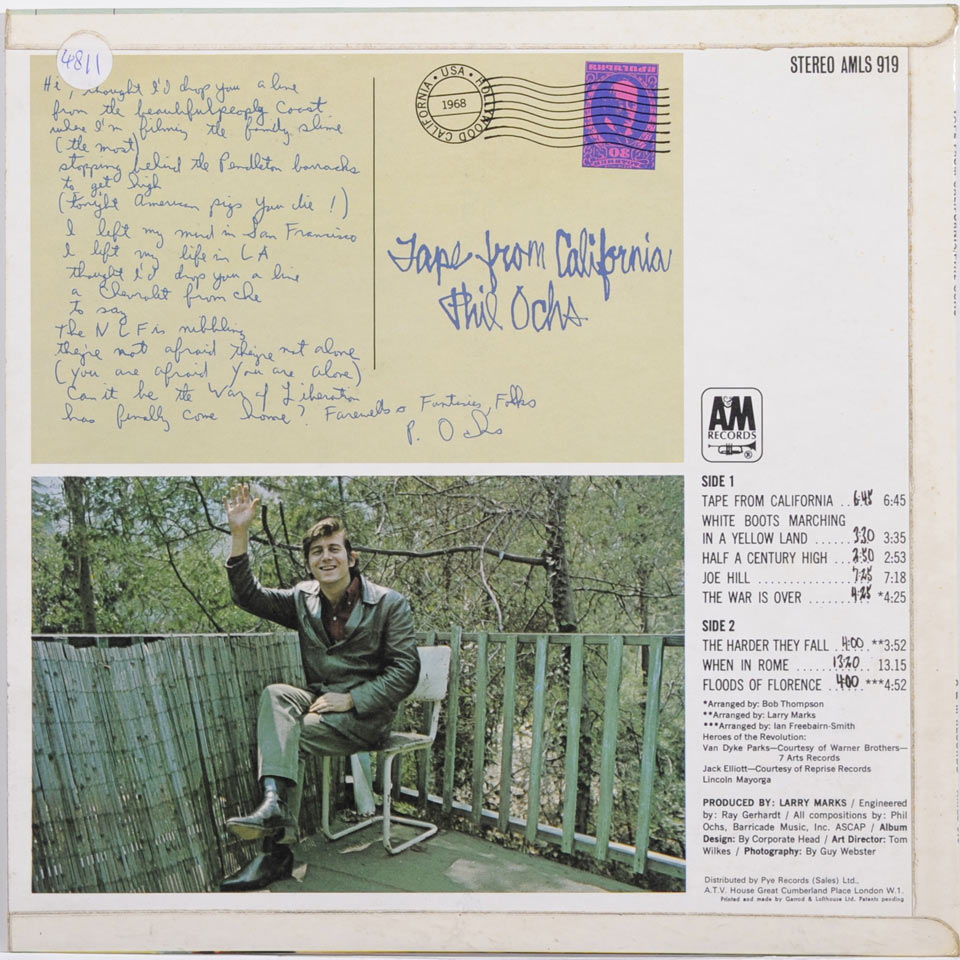 4811
Hi, thought I'd drop you a line
from the beautifulpeoply Coast
where I'm filming the family slime
(the most)
stopping behind the Pendleton barracks
to get high
(tonight American pigs you die!)
I left my mind in San Francisco
I left my life in LA
thought I'd drop you a line
a Chevrolet from che
to say
The NLF is nibbling
they're not afraid they're not alone
(you are afraid you are alone)
Can it be the War of Liberation
has finally come home? Farewells & Fantasies, Folks
P. Ochs
CALIFORNIA • USA • HOLLYWOOD CALIFORNIA
1968
Tape from California
Phil Ochs
STEREO AMLS 919
A&M
RECORDS
®
SIDE 1
TAPE FROM CALIFORNIA .. 6:45 6:45
WHITE BOOTS MARCHING
IN A YELLOW LAND ...... 3:30 3:35
HALF A CENTURY HIGH ... 2:50 2:53
JOE HILL .............. 7:25 7:18
THE WAR IS OVER ....... 4:25 *4:25
SIDE 2
THE HARDER THEY FALL . 4:00 **3:52
WHEN IN ROME ...... 13:20 13.15
FLOODS OF FLORENCE .. 4:00 ***4:52
*Arranged by: Bob Thompson
**Arranged by: Larry Marks
***Arranged by: Ian Freebairn-Smith
Heroes of the Revolution:
Van Dyke Parks—Courtesy of Warner Brothers—
7 Arts Records
Jack Elliott—Courtesy of Reprise Records
Lincoln Mayorga
PRODUCED BY: LARRY MARKS / Engineered
by: Ray Gerhardt / All compositions by: Phil
Ochs, Barricade Music, Inc. ASCAP / Album
Design: By Corporate Head / Art Director: Tom
Wilkes / Photography: By Guy Webster
Distributed by Pye Records (Sales) Ltd.,
A.T.V. House Great Cumberland Place London W.1.
Printed and made by Garrod & Lofthouse Ltd. Patents pending